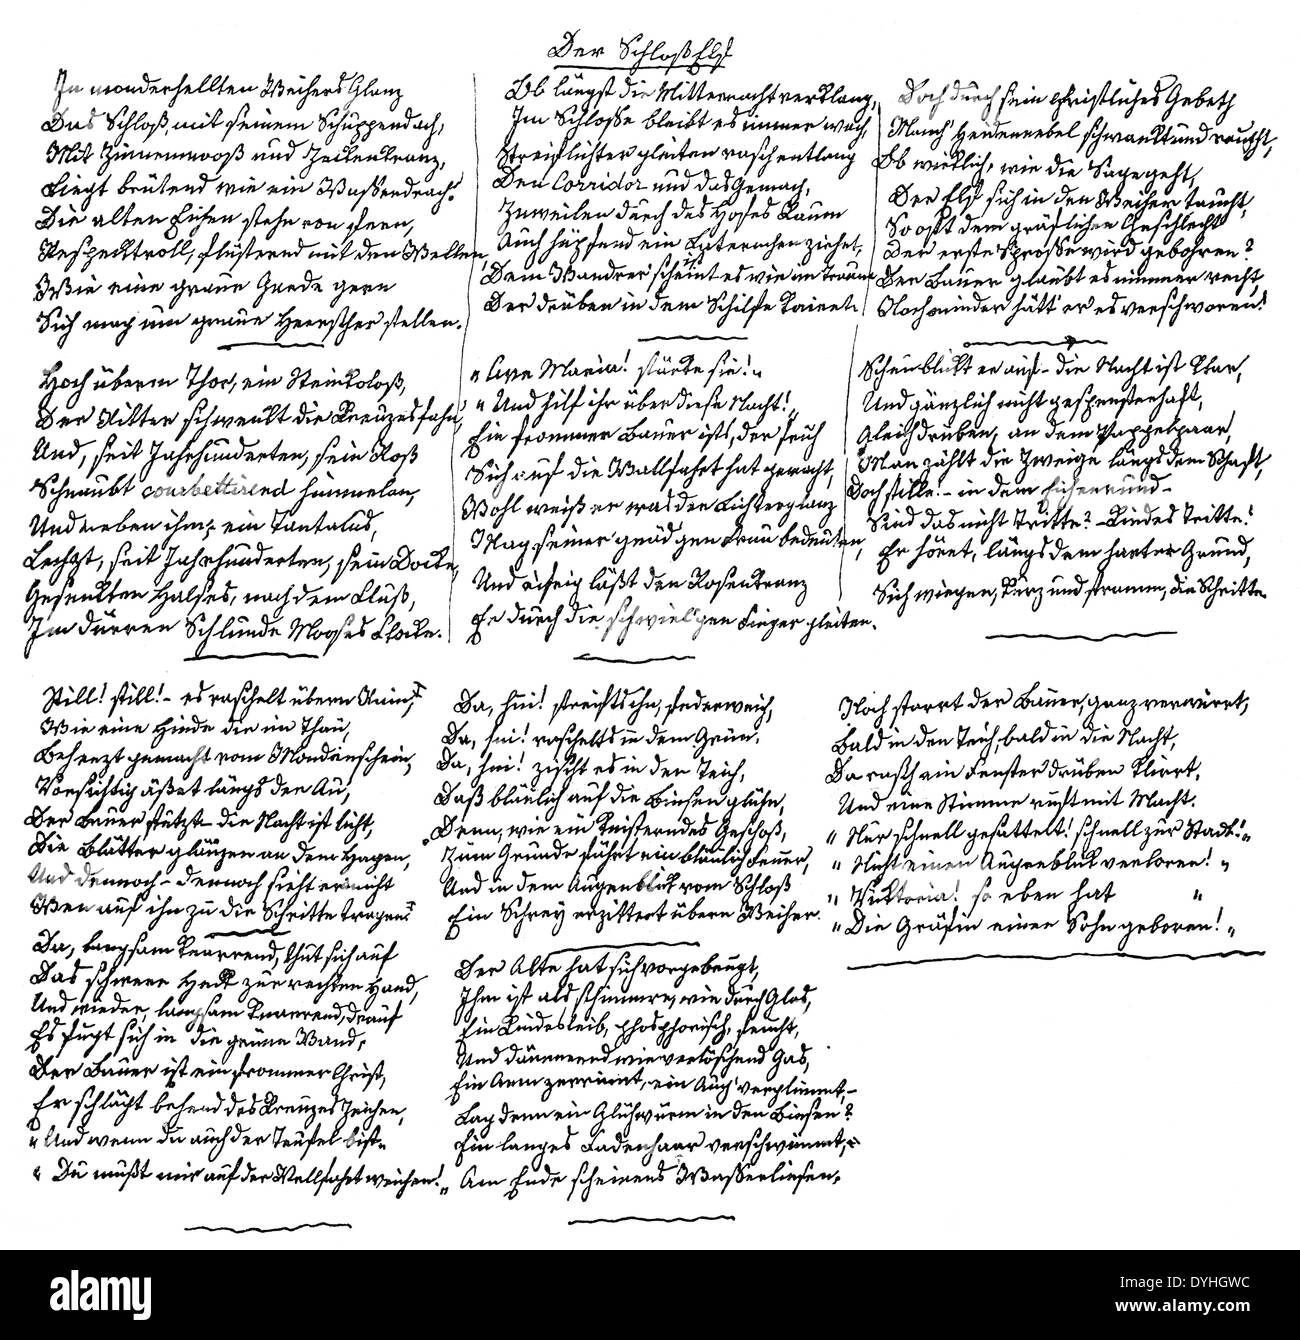 Der Schloßelf
In monderhellten Weihers Glanz
Das Schloß, mit seinem Schuppendach,
Mit Zinnenmooß und Zackenkranz,
Liegt brütend wie ein Wasserdrach.
Die alten Eichen stehn von fern,
Respektvoll, flüsternd mit den Wellen,
Wie eine graue Garde gern
Sich mag um graue Herrscher stellen.
Hoch überm Thor, ein Steinkoloß,
Der Ritter schwenkt die Kreuzesfahn,
Und, seit Jahrhunderten, sein Roß
Schnaubt courbettirend himmelan,
Und neben ihm, ein Tantalus,
Lechzt, seit Jahrhunderten, sein Docke,
Gesenkten Halses, nach dem Fluß,
Im dürren Schlunde Mooses Flocke.
Ob längst die Mitternacht verklang,
Im Schlosse bleibt es immer wach,
Streiflichter gleiten rasch entlang
Den Corridor und das Gemach,
Zuweilen durch des Hofes Raum
Auch hüpfend ein Laternchen ziehet,
Dem Wandrer ist es wie im Traum
Der drüben in dem Schilfe kniet.
„Ave Maria! stärke sie!„
„Und hilf ihr über diese Nacht!„
Ein frommer Bauer ists, der früh
Sich auf die Wallfahrt hat gemacht,
Wohl weiß er was der Lichterglanz
Mag seiner gnädgen Frau bedeuten,
Und eifrig läßt den Rosenkranz
Er durch die schwiel'gen Finger gleiten.
Doch durch sein christliches Gebeth
Manch Heidennebel schwankt und raucht,
Ob wirklich, wie die Sage geht,
Der Elf sich in den Weiher taucht,
So oft dem gräflichen Geschlecht
Der erste Sprosse wird geboren?
Der Bauer glaubt es nimmer recht
Noch minder hätt' er es verschworen!
Scheu blickt er auf - die Nacht ist klar,
Und gänzlich nicht gespensterhaft,
Gleich drüben, an dem Pappelpaar,
Man zählt die Zweige längs dem Schaft,
Doch stille! - in dem Eichenrund -
Sind das nicht Tritte? - Kindes Tritte!
Er höret, längs dem harten Grund,
Sich wiegen, kurz und stramm, die Schritte.
Still! still! - es raschelt übern Rain,
Wie eine Hinde die im Thau,
Beherzt gemacht vom Mondenschein,
Vorsichtig äßet längs der Au,
Der Bauer stutzt - die Nacht ist licht,
Die Blätter glänzen an dem Hagen,
Und dennoch - dennoch sieht er nicht
Wen auf ihn zu die Schritte tragen.
Da, langsam knarrend, thut sich auf
Das schwere Heck zur rechten Hand,
Und wieder, langsam knarrend, drauf
Es fugt sich in die grüne Wand,
Der Bauer ist ein frommer Christ,
Er schlägt behend des Kreuzes Zeichen,
„Und wenn du auch der Teufel bist„
„Du mußt mir auf der Wallfahrt weichen!„
Da, hui! streifts ihn, federweich,
Da, hui! raschelts in dem Grün,
Da, hui! zischt es in den Teich,
Daß bläulich auf die Binsen glühn,
Denn, wie ein knisterndes Geschoß,
Zum Grunde fährt ein bläulich Feuer,
Und in dem Augenblick vom Schloß
Ein Schrey erzittert übern Weiher.
Der Alte hat sich vorgebeugt,
Ihm ist als schimmre, wie durch Glas,
Ein Kindesleib, phosphorisch, feucht,
Und dämmernd wie verlöschend Gas,
Ein Arm zerrinnt, ein Aug' verglimmt, -
Lag denn ein Glühwurm in den Binsen?
Ein langes Fadenhaar verschwimmt, -
Am Ende scheinens Wasserlinsen.
Noch starrt der Bauer, ganz verwirrt,
Bald in den Teich, bald in die Nacht,
Da rasch ein Fenster drüben klirrt,
Und eine Stimme ruft mit Macht.
„Nur schnell gesattelt! schnell zur Stadt!„
„Nicht einen Augenblick verloren!„
„Viktoria! so eben hat„
„Die Gräfin einen Sohn geboren!„
alamy
Image ID: DYHGWC
www.alamy.com